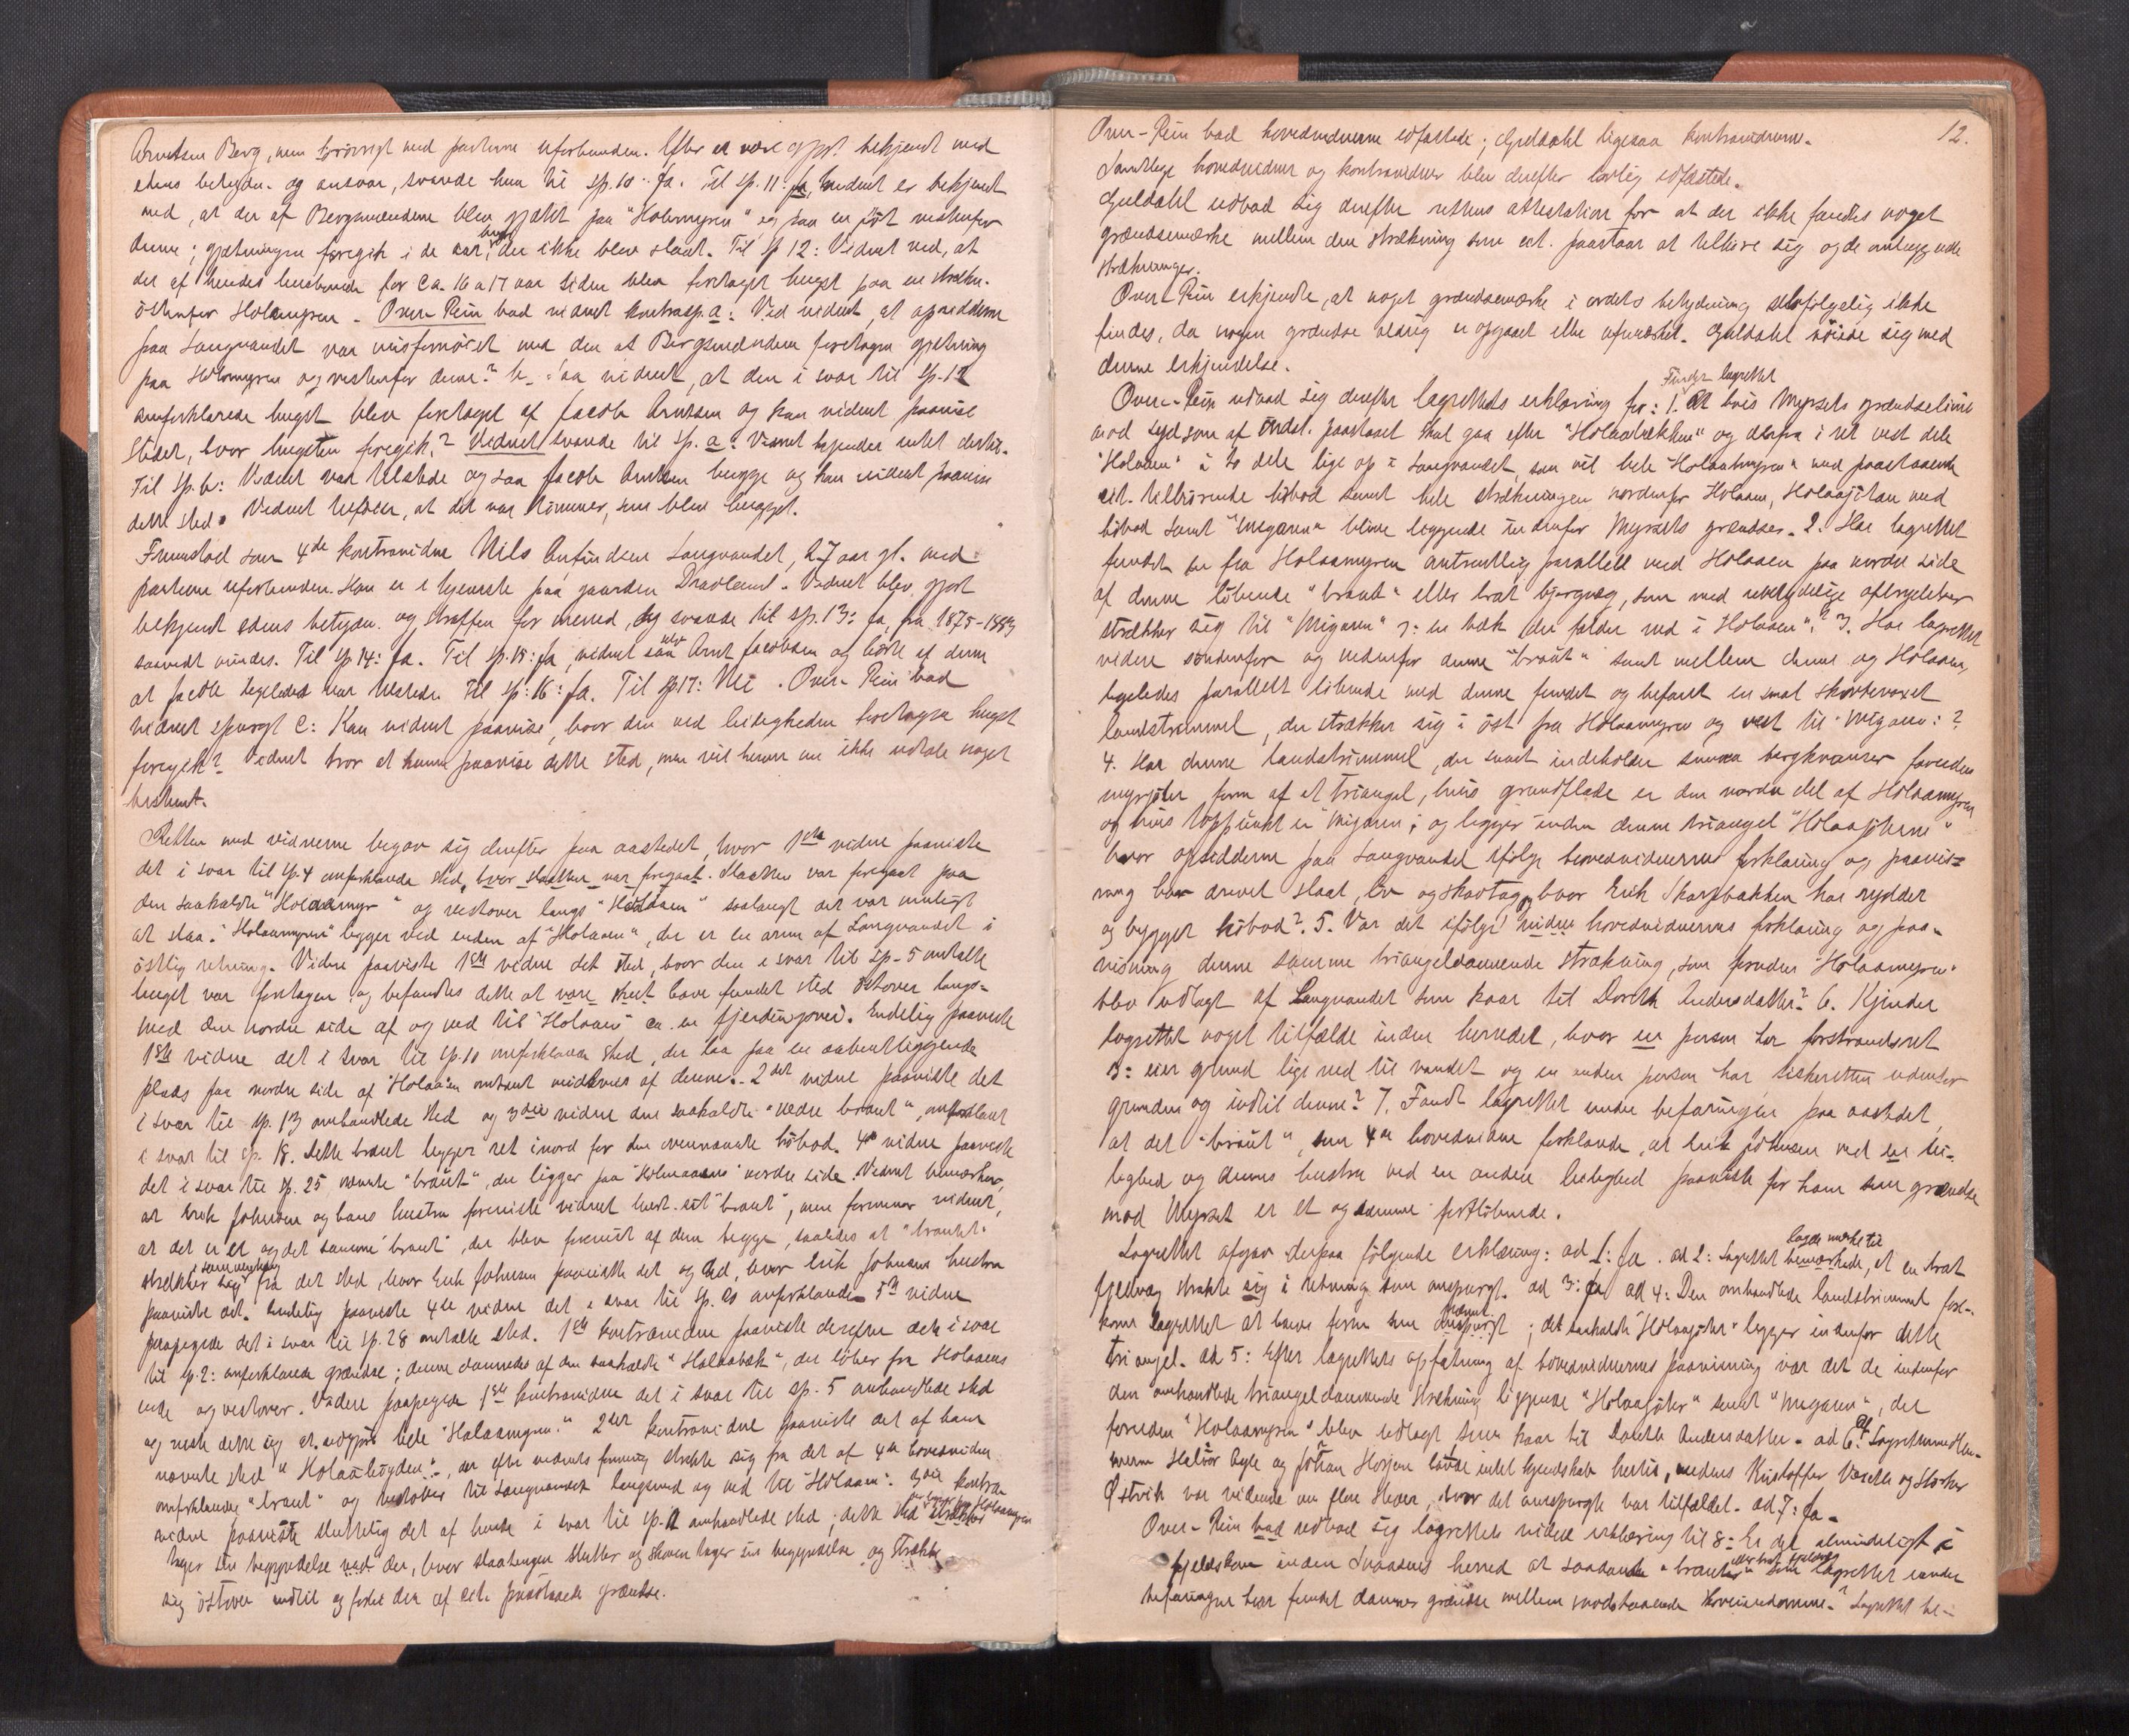 Arntsen Berg, men forøvrigt med parterne uforbunden. Efter at være gjort bekjendt med
edens betydn. og ansvar, svarede hun til sp. 10: Ja. Til sp. 11: Ja, vidnet er bekjendt
med, at der af Bergsmændene blev gjætet paa "Holamyren", og paa en jöt vestenfor
denne; gjætningen foregik i de aar, der ikke blev slaat. Til sp 12: Vidnet ved, at
der af hendes husbonde for ca. 16 a 17 aar siden blev foretaget hugst paa en strækn.
östenfor Holamyren. Over-Rein bad vidnet kontrasp. a: Ved vidnet, at opsidderne
paa Langvandet var misfornöiet med den af Bergsmændene foretagne gjætning
paa Holamyren og vestenfor denne? b. Saa vidnet, at den i svar til sp. 12
omforklarede hugst blev foretaget af Jacob Arntsen og kan vidnet paavise
stedet, hvor hugsten foregik? Vidnet svarede til sp. a: Vidnet kjender intet dertil.
Til sp. b: Vidnet var tilstede og saa Jacob Arntsen hugge og kan vidnet paavise
dette sted. Vidnet tilföier, at det var tömmer, som blev hugget.
Fremstod som 4de kontravidne Nils Anfindsen Langvandet, 27 aar gl. med
parterne uforbunden. Han er i tjeneste paa gaarden Dravland. Vidnet blev gjort
bekjendt edens betydn. og straffen for mened, og svarede til sp. 13: ja, fra 1875-1883
saavidt mindes. Til sp. 14: Ja. Til sp. 15: Ja, vidnet saa selv Arnt Jacobsen og hörte af denne
at Jacob ligeledes var tilstede. Til sp: 16: Ja. Til sp 17: Nei. Over-Rein bad
vidnet spurgt c: Kan vidnet paavise, hvor den ved leiligheden foretagne hugst
foregik? Vidnet tror at kunne paavise dette sted, men vil herom nu ikke udtale noget
bestemt.
Retten med vidnerne begav sig derefter paa aastedet, hvor 1ste vidne paaviste
det i svar til sp. 4 omforklarede sted, hvor slaatten var foregaat. Slaatten var foregaat paa
den saakaldte "Holaamyr" og vestover langs "Holaaen" saalangt det var muligt
at slaa. "Holaamyren" ligger ved enden af "Holaaen", der er en arm af Langvandet i
östlig retning. Videre paaviste 1ste vidne det sted, hvor den i svar til sp. 5 omtalte
hugst var foretagen og befandtes dette at være skeet have fundet sted östover langs-
med den nordre side af og ned til "Holaaen" ca. en fjerdingsvei. Endelig paaviste
1ste vidne det i svar til sp. 10 omforklarede sted, der laa paa en aabentliggende
plads paa nordre side af "Holaaen omtrent midtveis af denne. 2det vidne paaviste det
i svar til sp. 13 omhandlede sted og 3die vidne den saakaldte "nedre braut", omforklaret
i svar til sp. 18. Dette braut ligger ret inord for den ovennævnte löbod. 4de vidne paaviste
det i svar til sp. 25 nævnte "braut", der ligger paa "Holaaens" nordre side. Vidnet bemærker,
at Erik Johnsen og hans hustru foreviste vidnet hvert sit "braut", men formener vidnet,
at det er et og det samme "braut", der blev forevist af dem begge, saaledes at "brautet"
strækker sig sammenhæng fra det sted, hvor Erik Johnsen paaviste det og hid, hvor Erik Johnsens hustru
paaviste det. Endelig paaviste 4de vidne det i svar til sp. 20 omforklarede. 5te vidne
paapegede det i svar til sp. 28 omtalte sted. 1ste kontravidne paaviste derefter den i svar
til sp. 2: omforklarede grændse; denne dannedes af den saakaldte "Holaabæk", der löber fra Holaaens
ende og vestover. Videre paapegede 1ste kontravidne det i svar til sp. 5 omhandlede sted
og viste dette sig at udgjöre hele "Holaamyren." 2det kontravidne paaviste det af ham
nævnte sted "Holaahögden", der efter vidnets forening strakte sig fra det af 4de hovedvidne
omforklarede "braut" og vestover til Langvandet langsmed og ned til "Holaaen". 3die kontra-
vidne paaviste sluttelig det af hende i svar til sp. 12 omhandlede sted; dette sted
tager sin begyndelse ved der, hvor slaatengen slutter og skoven tager sin begyndelse og strækker
sig östover indtil og forbi den af cit. paastaaede grændse.
12.
Over-Rein bad hovedvidnerne edfæstede; Guldahl ligesaa kontravidnerne.
Samtlige hovedvidner og kontravidner blev derefter lovlig edfæstede.
Guldahl udbad sig derefter rettens attestation for at der ikke fandtes noget
grændsemærke mellem den strækning som cit. paastaar at tilhöre sig og de omliggende
strækninger.
Over-Rein erkjendte, at noget grændsemærke i ordets betydning selvfölgelig ikke
findes, da nogen grændse aldrig er opgaaet eller afmærket. Guldahl nöiede sig med
denne erkjendelse.
Over-Rein udbad sig derefter lagrettets erklæring for: 1. Finder lagrettet At hvis Myrsets grændselinie
mod syd som af indst. paastaaet skal gaa efter "Holaabækken" og derfra i ret vest dele
"Holaaen" i to dele lige op i Langvandet, saa vil hele "Holaamyren" med paastaaende
cit. tilhörende löbod samt hele strækningen nordenfor Holaaen, Holaajötan med
löbod samt "Migaren" blive liggende indenfor Myrsets grændser. 2. Har lagrettet
fundet en fra Holaamyren omtrentlig parallelt med Holaaen paa nordre side
af denne löbende "braut" eller brat bjergvæg, som med ubetydelige afbrydelser
strækker sig til "Migaren" ɔ: en bæk der falder ned i Holaaen"? 3. Har lagrettet
videre söndenfor og nedenfor denne "braut" samt mellem denne og Holaaen,
ligeledes parallelt löbende med denne fundet og befaret en smal skovbevoxet
landstrimmel, der strækker sig i öst fra Holaamyren og vest til "Migaren": ?
4. Har denne landstrimmel, der snart indeholder smaa bergknauser foruden
myrjöter form af et triangel, hvis grundflade er den nordre del af Holaamyren
og hvis toppunkt er "Migaren"; og ligger inden denne triangel "Holaajöterne"
hvor opsidderne paa Langvandet ifölge hovedvidnernes forklaring og paavis-
ning har drevet slaat, löv og skavtag og hvor Erik Skarpbakken har ryddet
og bygget löbod? 5. Var det ifölge vidnes hovedvidnernes forklaring og paa-
visning denne samme triangeldannende strækning, som foruden "Holaamyren"
blev udlagt af Langvandet som kaar til Dorth. Andersdatter? 6. Kjender
lagrettet noget tilfælde inden herredet, hvor en person har forstrandsret
ɔ: eier grund lige ned til vandet og en anden person har fiskeretten udenfor
grunden og indtil denne? 7. Fandt lagrettet under befaringen paa aastedet
at det "braut", som 4de hovedvidne forklarede, at Erik Johnsen ved en lei-
lighed og dennes hustru ved en anden leilighed paaviste for ham som grændse
mod Myrset er et og samme fortlöbende.
Lagrettet afgav derpaa fölgende erklæring: ad 1: Ja. ad 2: Lagrettet lagde mærke til bemærkede, at en brat
fjeldvæg strakte sig i retning som omspurgt. ad 3: Ja ad 4: Den omhandlede landstrimmel fore-
kom lagrettet at have form som nævnt omspurgt; det saakaldte "Holaajöter" ligger indenfor dette
triangel. ad 5: Efter lagrettets opfatning af hovedvidnernes paavisning var det de indenfor
den omhandlede triangeldannende strækning liggende "Holaajöter" samt "Migaren", der
foruden "Holaamyren" blev udlagt som kaar til Dorthe Andersdatter. ad 6: Af Lagrettemedlem-
merne Halvor Agle og Johan Hosjem havde intet kjendskab hertil, medens Kristoffer Væretle og Storker
Østvik var vidende om flere steder, hvor det omspurgte var tilfældet. ad 7: Ja.
Over-Rein bad udbad sig lagrettets videre erklæring til 8: Er det almindeligt i
fjeldskov inden Snaasens herred at saadanne "brauter" som lagrettet under
befaringen har fundet danner grændse mellem modstaaende eiendomme? Lagrettet be-